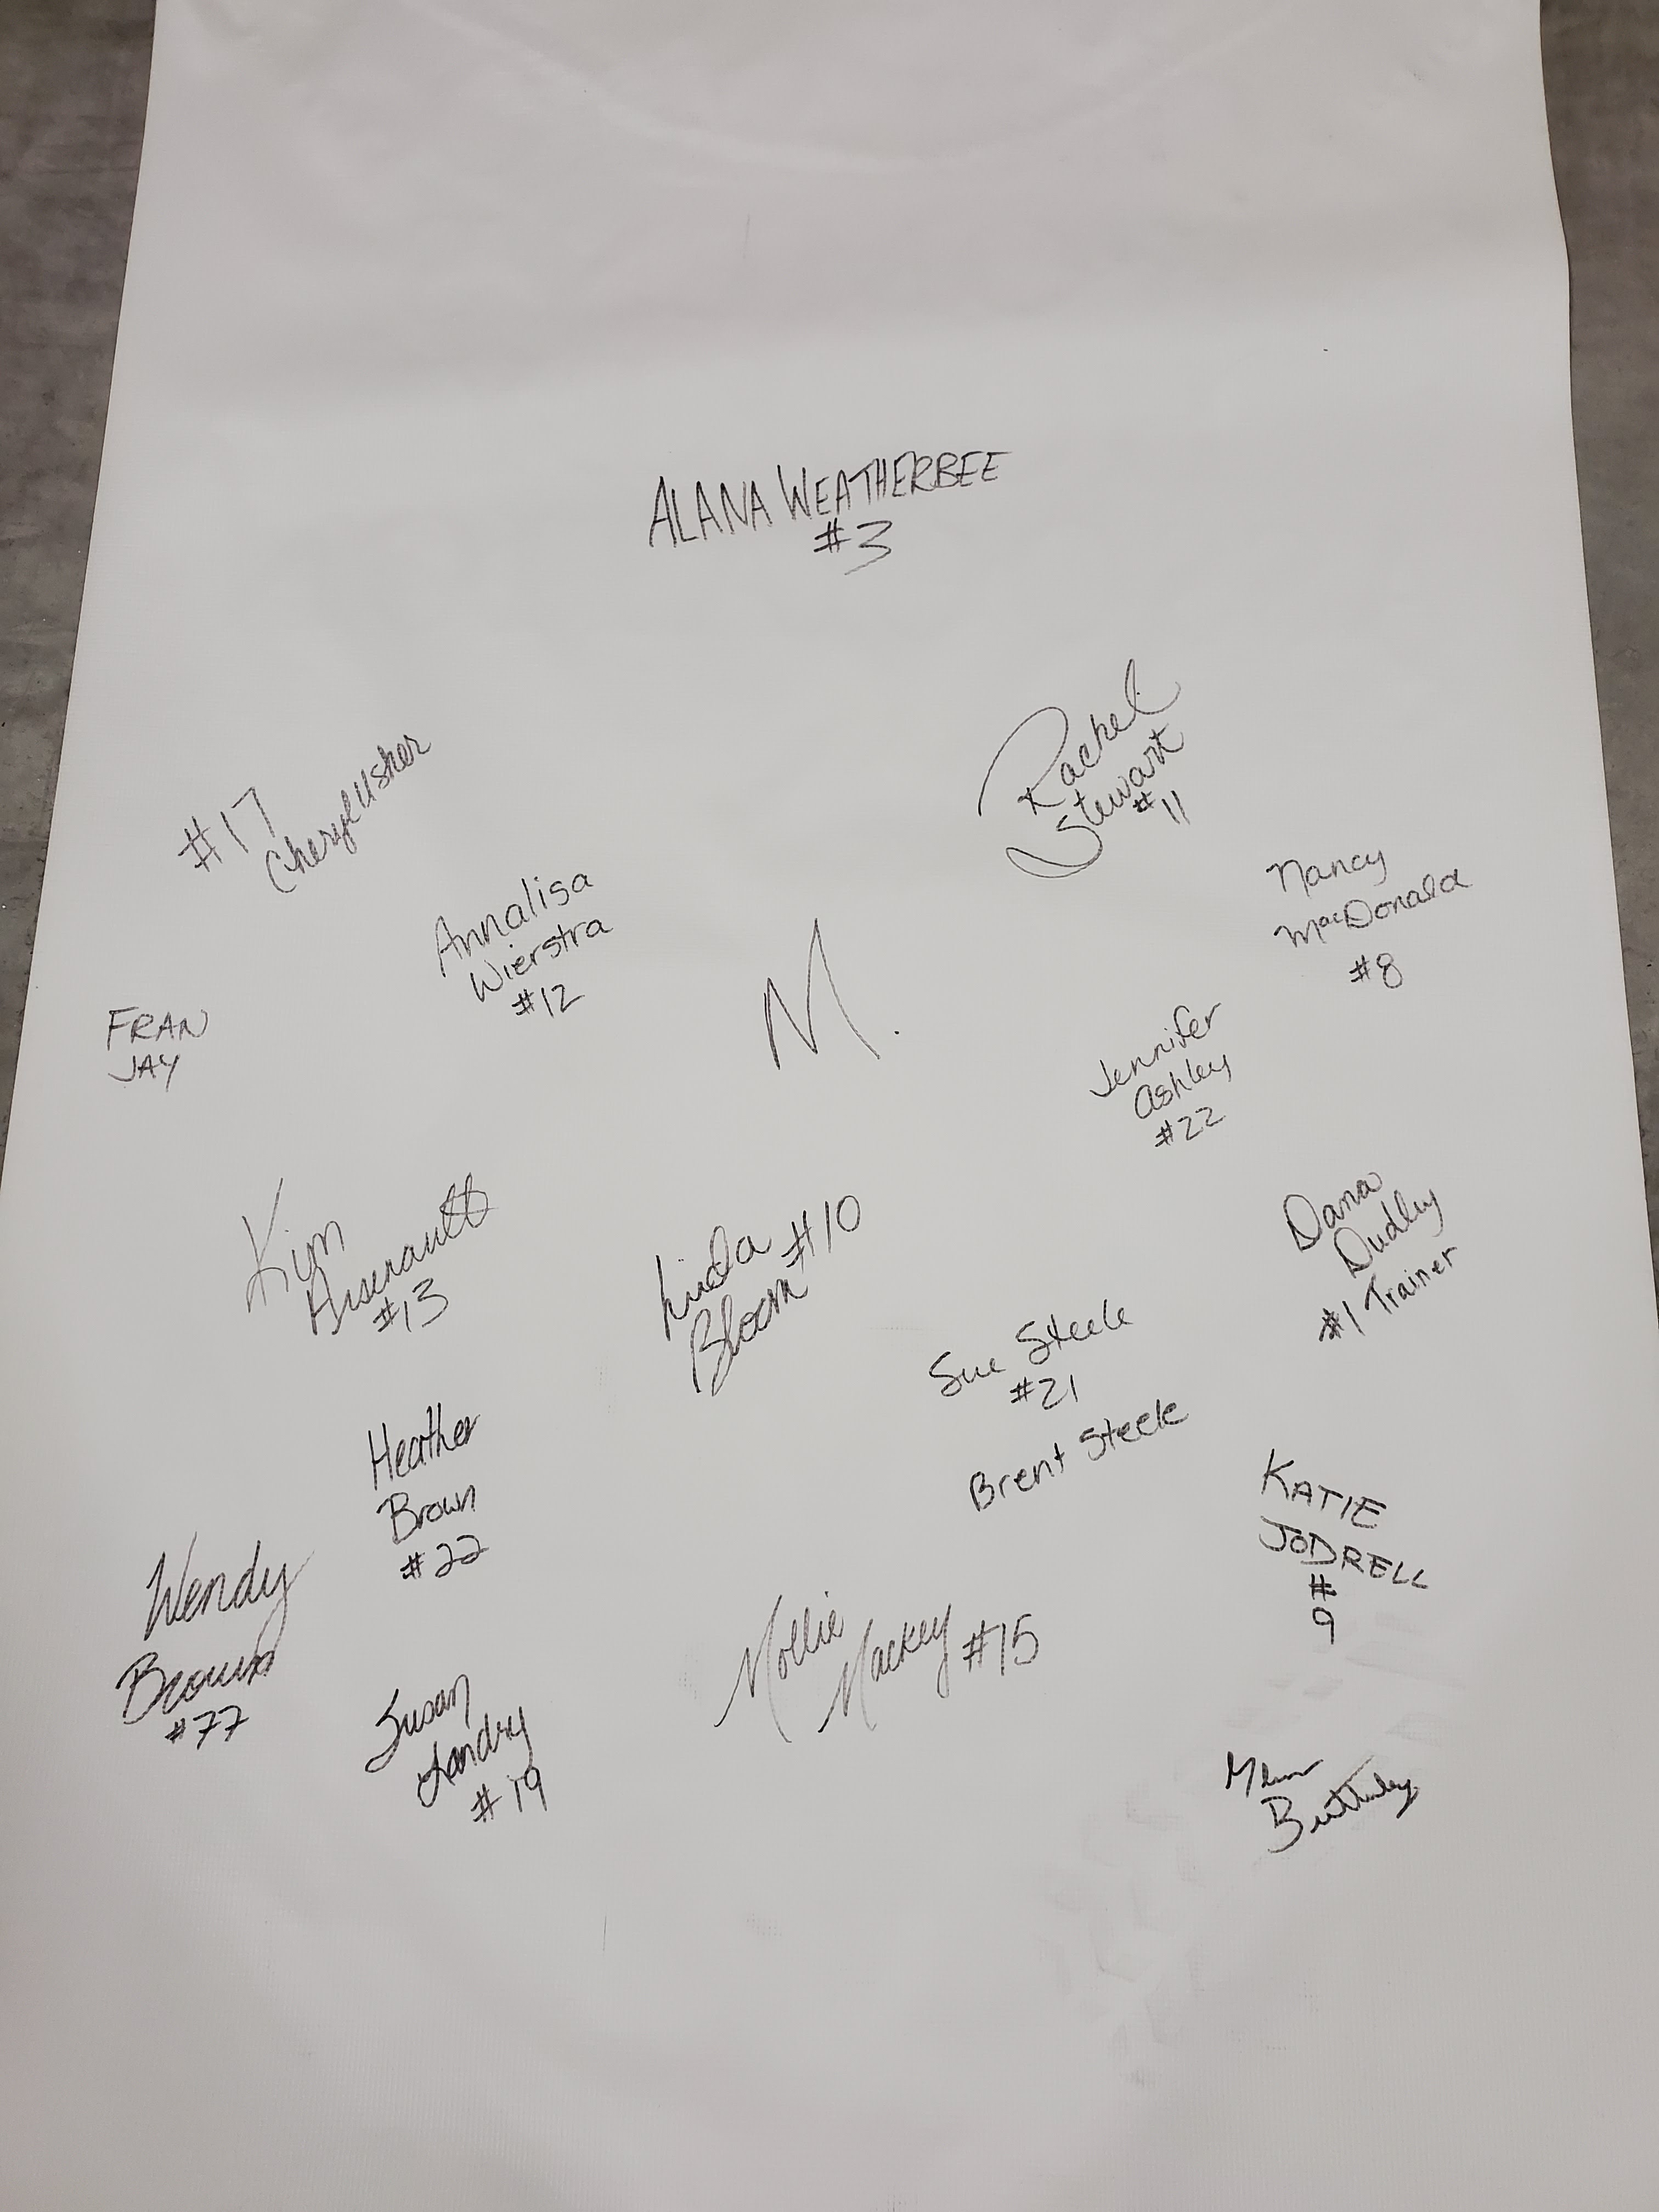 ALANA WEATHERBEE
#3
Rachel
Stewart
#11
#17
Cheryl Usher
Nancy
MacDonald
#8
Annalisa
Wierstra
#12
M.
FRAN
JAY
Jennifer
Ashley
#22
Kim
Arsenault
#13
Linda
Bloom #10
Dana
Dudley
#1 Trainer
Sue Steele
#21
Brent Steele
Heather
Brown
#22
KATIE
JODRELL
#
9
Wendy
Brown
#77
Mollie
Mackey #15
Susan
Landry
#19